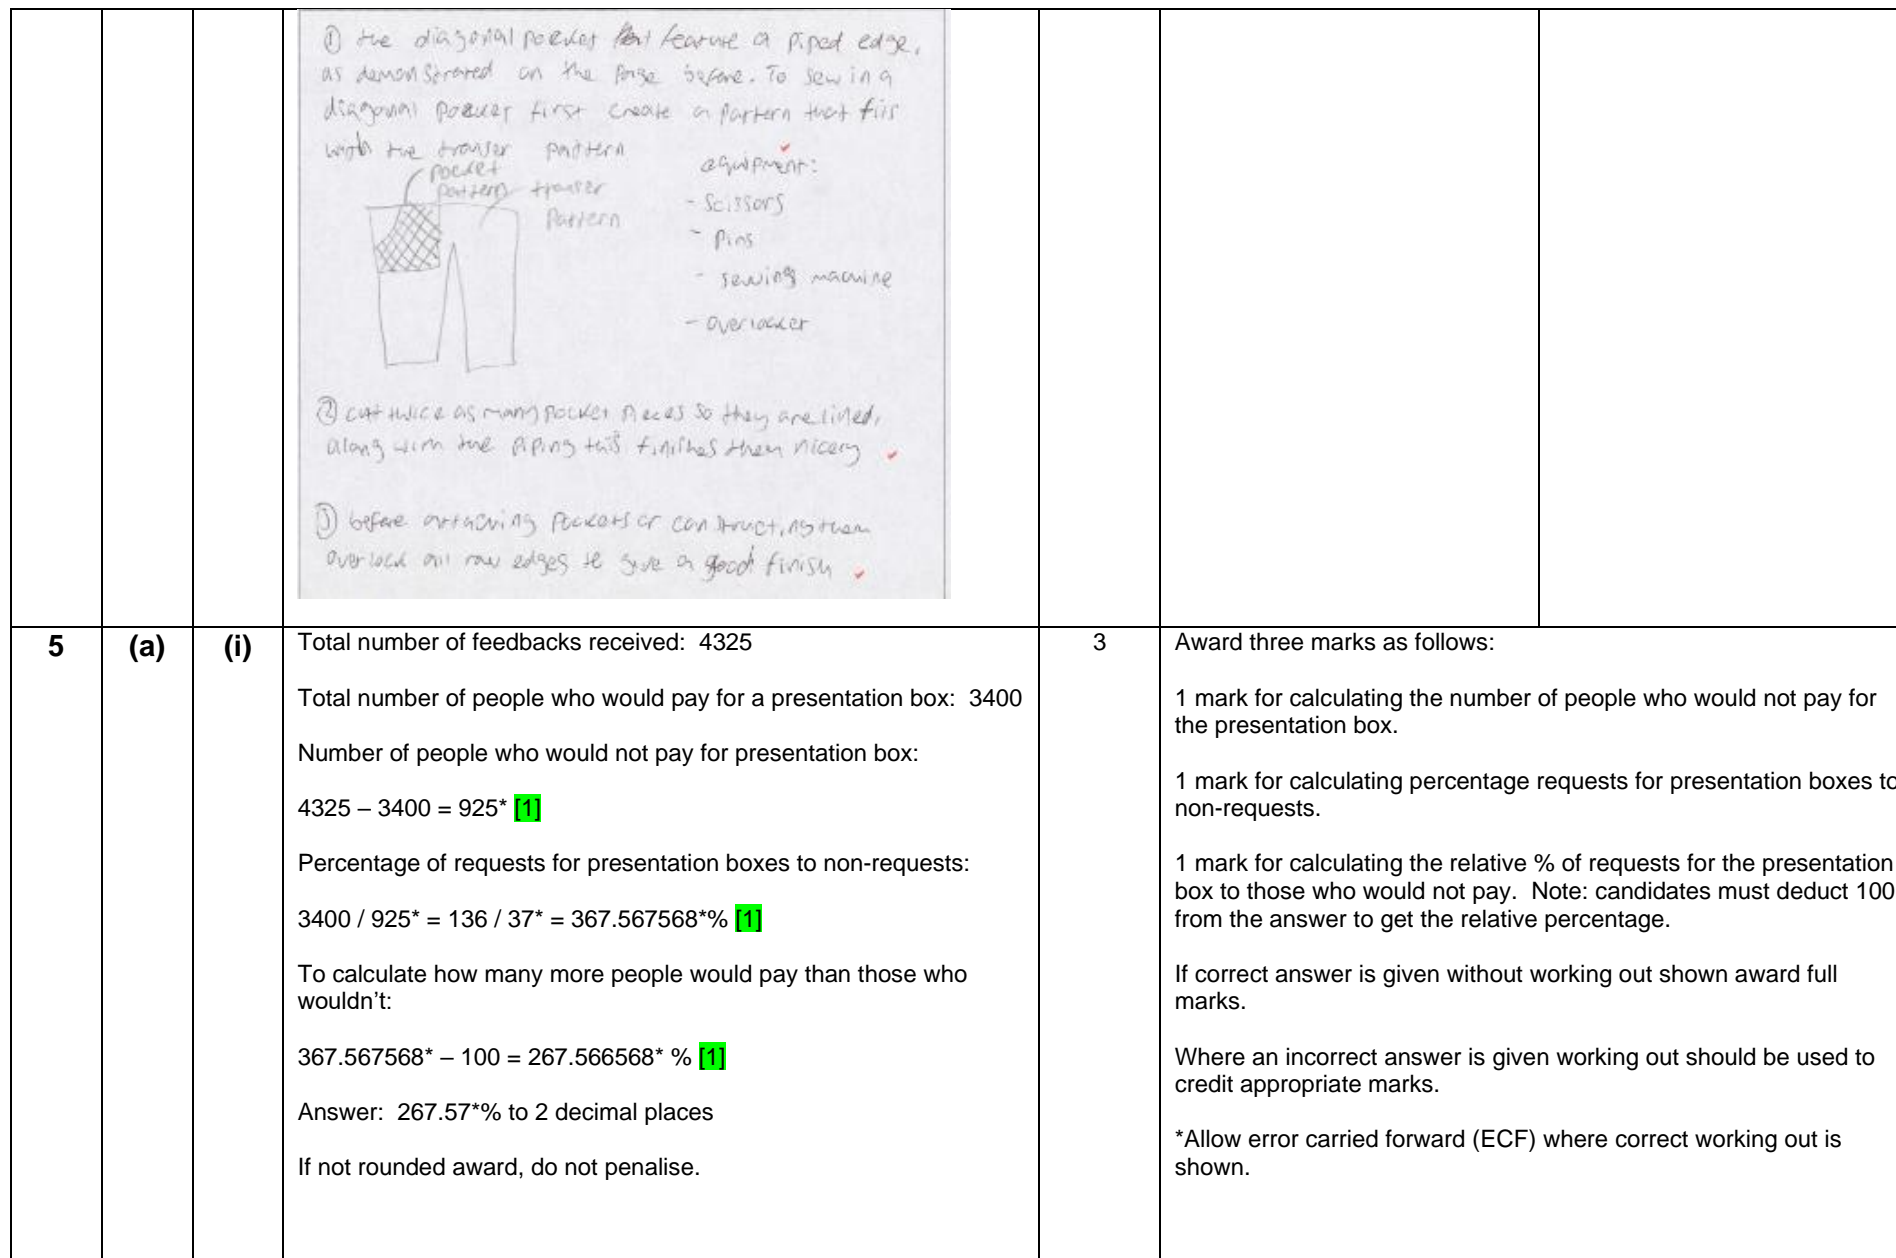 ① the diagonal pocket feature a piped edge,
as demonstrated on the page before. To sew in a
diagonal pocket first create a pattern that fits
with the trouser pattern
pocket
pattern
trouser
pattern
equipment:
- Scissors
- Pins
- sewing machine
- overlocker
② cut twice as many pocket pieces so they are lined,
along with the piping this finishes them nicely
③ before attaching pockets or constructing them
overlock all raw edges to give a good finish
5 (a) (i)
Total number of feedbacks received: 4325
Total number of people who would pay for a presentation box: 3400
Number of people who would not pay for presentation box:
4325 – 3400 = 925* [1]
Percentage of requests for presentation boxes to non-requests:
3400 / 925* = 136 / 37* = 367.567568*% [1]
To calculate how many more people would pay than those who
wouldn't:
367.567568* – 100 = 267.566568* % [1]
Answer: 267.57*% to 2 decimal places
If not rounded award, do not penalise.
3
Award three marks as follows:
1 mark for calculating the number of people who would not pay for
the presentation box.
1 mark for calculating percentage requests for presentation boxes to
non-requests.
1 mark for calculating the relative % of requests for the presentation
box to those who would not pay. Note: candidates must deduct 100
from the answer to get the relative percentage.
If correct answer is given without working out shown award full
marks.
Where an incorrect answer is given working out should be used to
credit appropriate marks.
*Allow error carried forward (ECF) where correct working out is
shown.